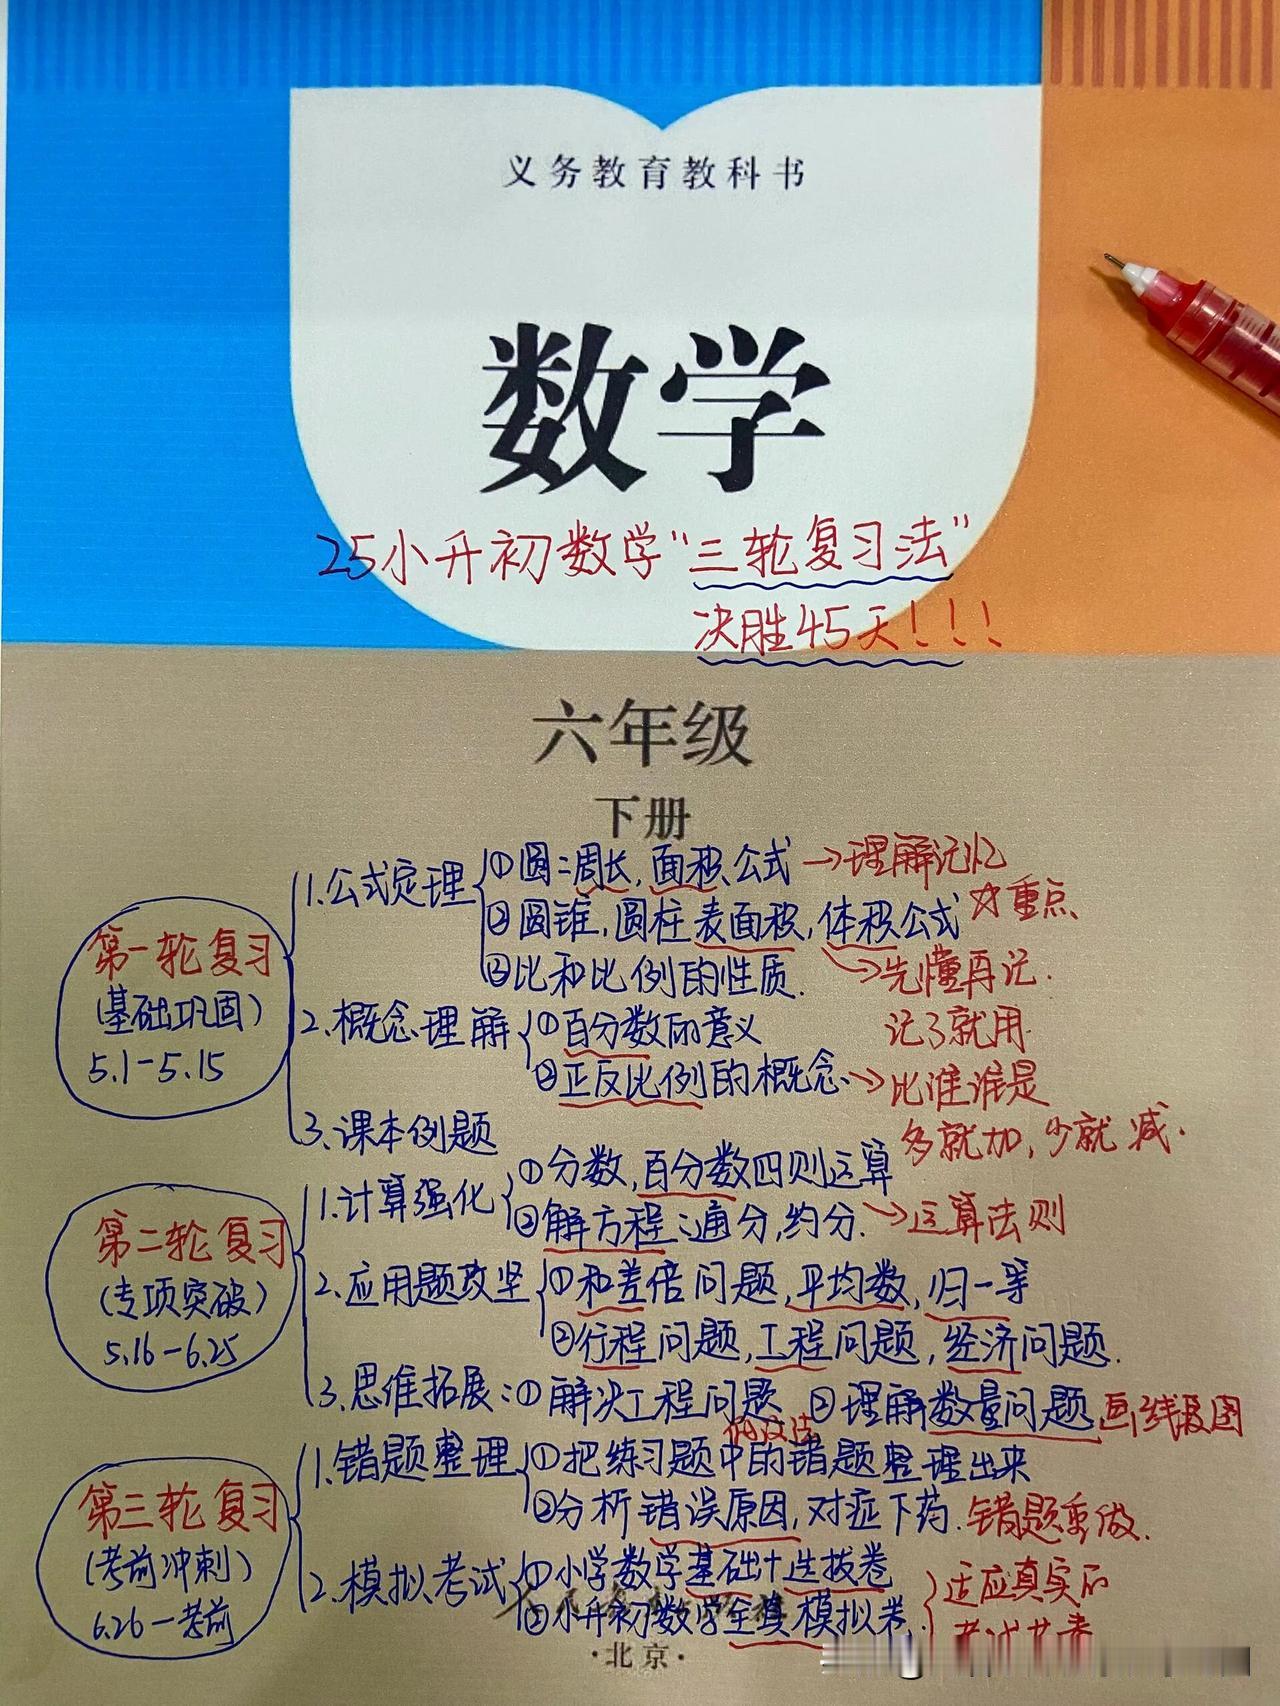 义务教育教科书
数学
25小升初数学“三轮复习法”
决胜45天！！！
六年级
下册
第一轮复习
(基础巩固)
5.1-5.15
1.公式定理
①圆:周长,面积公式→理解记忆
②圆锥,圆柱表面积,体积公式☆重点
→先懂再记.
记了就用
③比和比例的性质.
2.概念理解
①百分数的意义
②正反比例的概念→比谁谁是
多就加,少就减.
3.课本例题
第二轮复习
(专项突破)
5.16-6.25
1.计算强化
①分数,百分数四则运算
②解方程:通分,约分.→运算法则
2.应用题攻坚
①和差倍问题,平均数,归一等
②行程问题,工程问题,经济问题.
3.思维拓展:①解决工程问题 ②理解数量问题 画线段图
假设法
第三轮复习
(考前冲刺)
6.26-考前
1.错题整理
①把练习题中的错题整理出来
②分析错误原因,对症下药.错题重做.
2.模拟考试
①小学数学基础+选拔卷
②小升初数学全真模拟卷.
适应真实的
北京